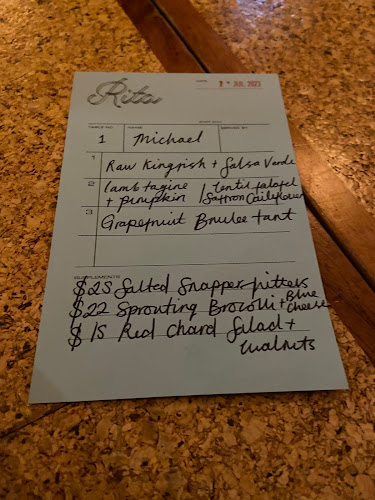 Rita
DATE 1 JUL 2023
TABLE NO. NAME SERVED BY
1 Michael
1 Raw Kingfish + Salsa Verde
2 Lamb tagine / Lentil falafel
+ pumpkin / Saffron Cauliflower
3 Grapefruit Brulee tart
SUPPLEMENTS
$25 Salted Snapper fritters
$22 Sprouting Brocolli + Blue Cheese
$15 Red Chard Salad +
walnuts